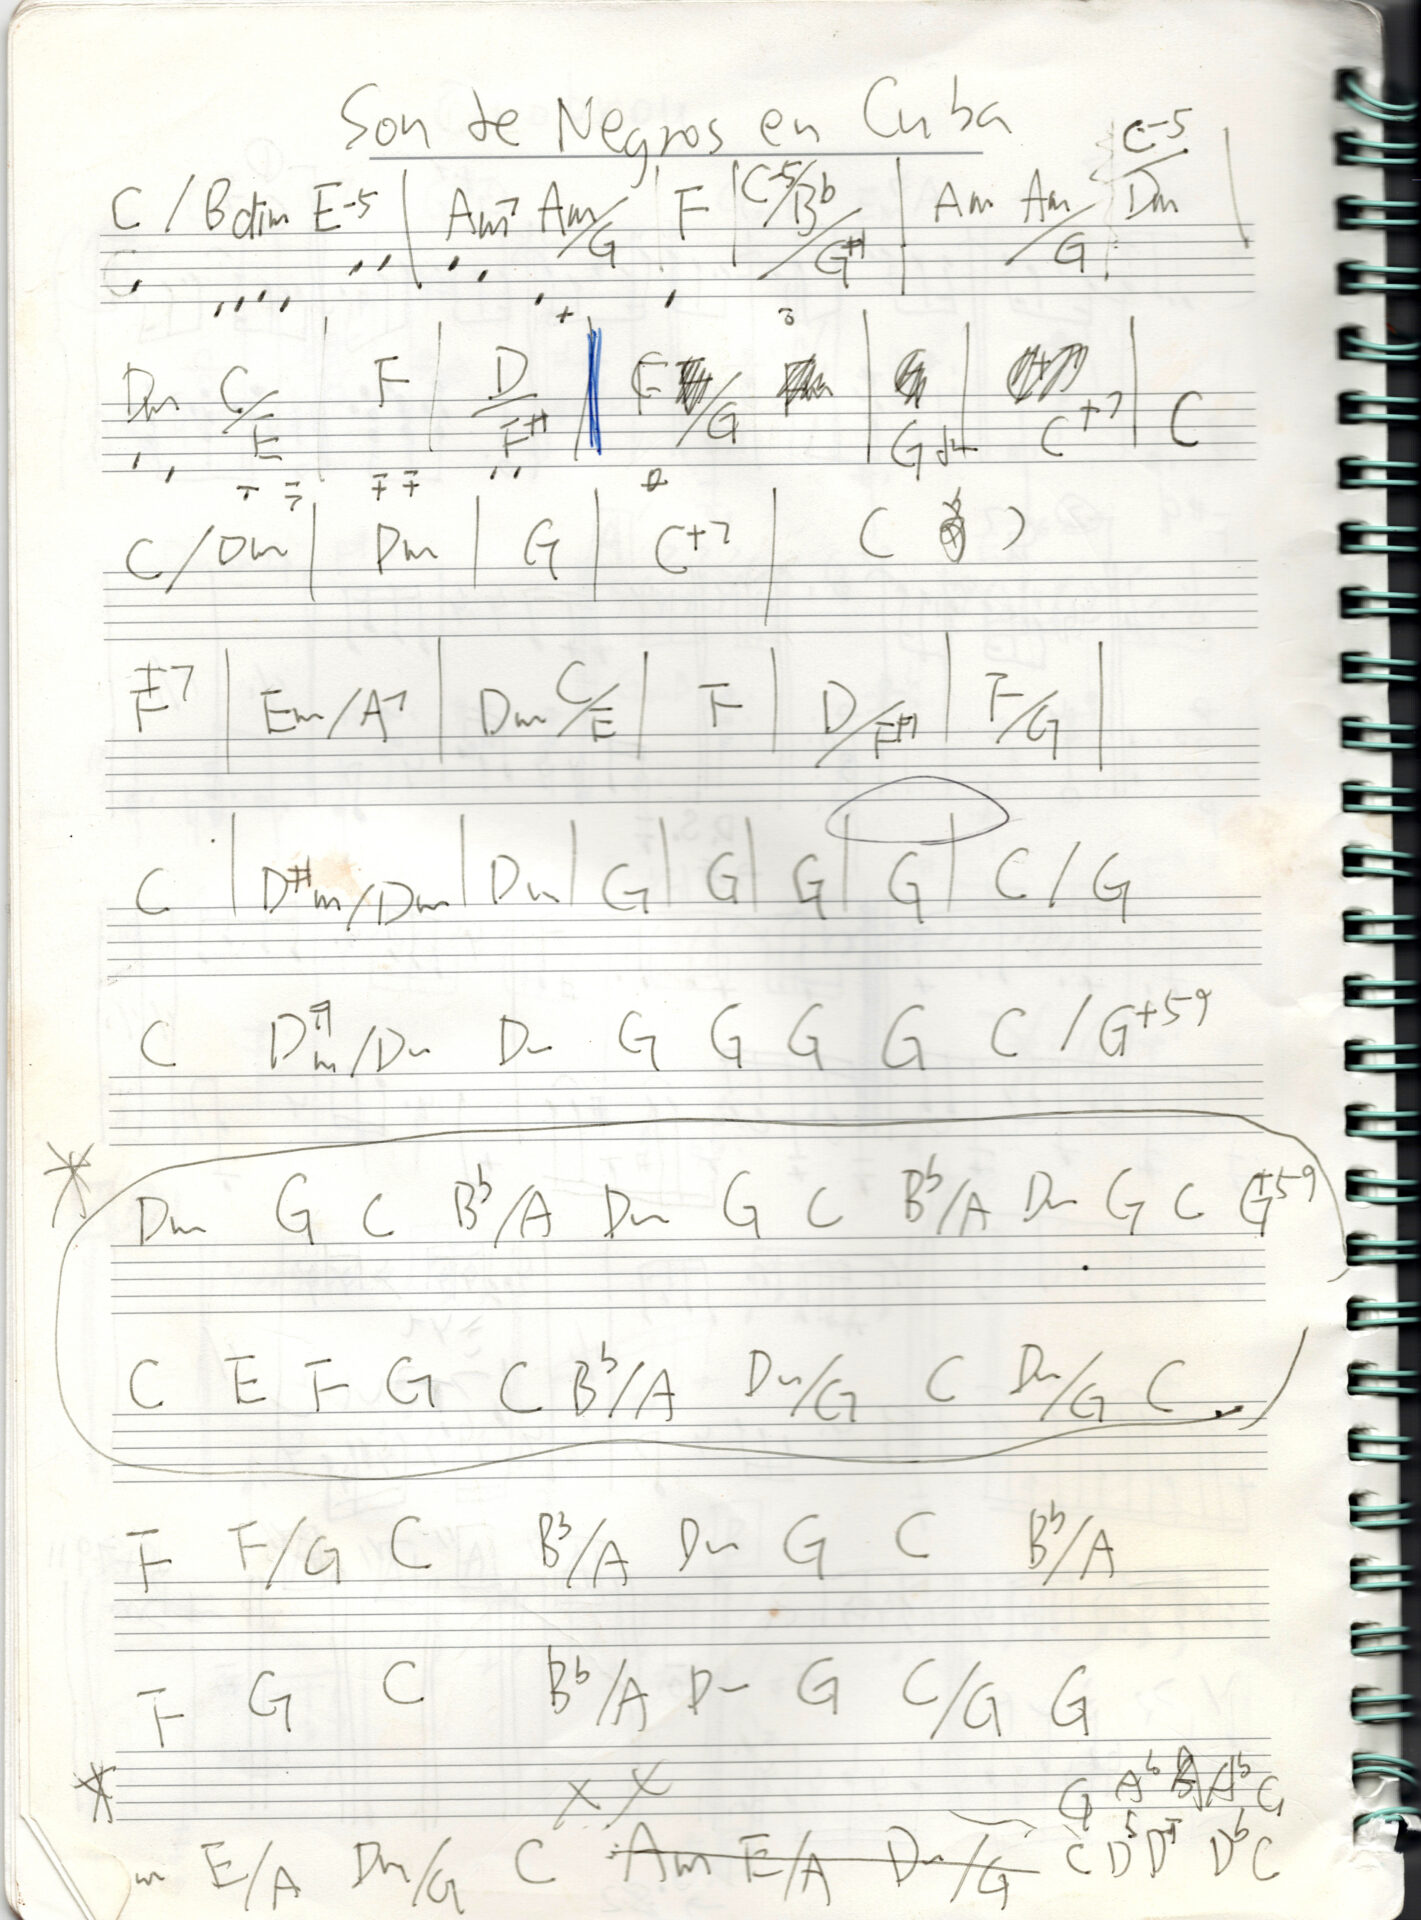 Son de Negros en Cuba
C / Bdim E-5 | Am7 Am/G | F | C-5/Bb /G# | Am Am/G C-5/Dm |
Dm C/E | F | D/F# | F /G | G | C+7 | C
C / Dm | Dm | G | C+7 | C
F+7 | Em/A7 | Dm C/E | F | D/F# | F/G |
C | D#m/Dm | Dm | G | G | G | G | C / G
C D#m/Dm Dm G G G G C / G+59
* Dm G C Bb/A Dm G C Bb/A Dm G C G+59
C E F G C Bb/A Dm/G C Dm/G C
F F/G C Bb/A Dm G C Bb/A
F G C Bb/A Dm G C/G G
* X X G Ab A Ab G
m E/A Dm/G C Am E/A Dm/G C Db D Db C